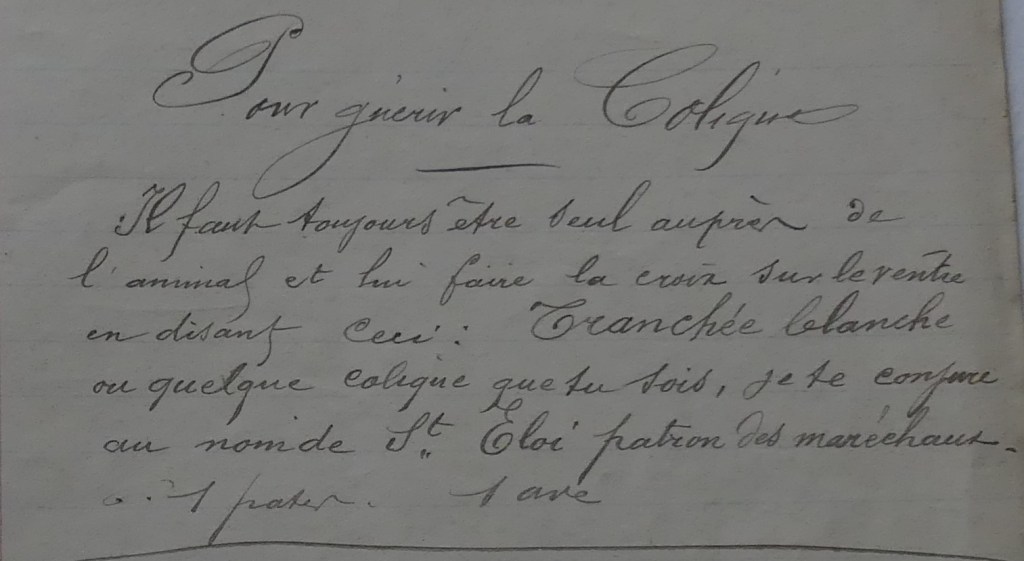 Pour guérir la Coligue
Il faut toujours être seul auprès de
l'animal et lui faire la croix sur le ventre
en disant ceci : Tranchée blanche
ou quelque coligue que tu sois, je te conjure
au nom de St Éloi patron des maréchaux
1 pater. 1 ave